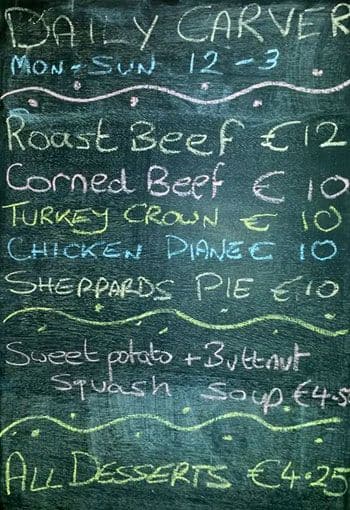 DAILY CARVER
MON-SUN 12-3
Roast Beef €12
Corned Beef € 10
TURKEY CROWN € 10
CHICKEN DIANE € 10
SHEPPARDS PIE €10
Sweet potato + Butternut
Squash Soup €4.50
ALL DESSERTS €4.25